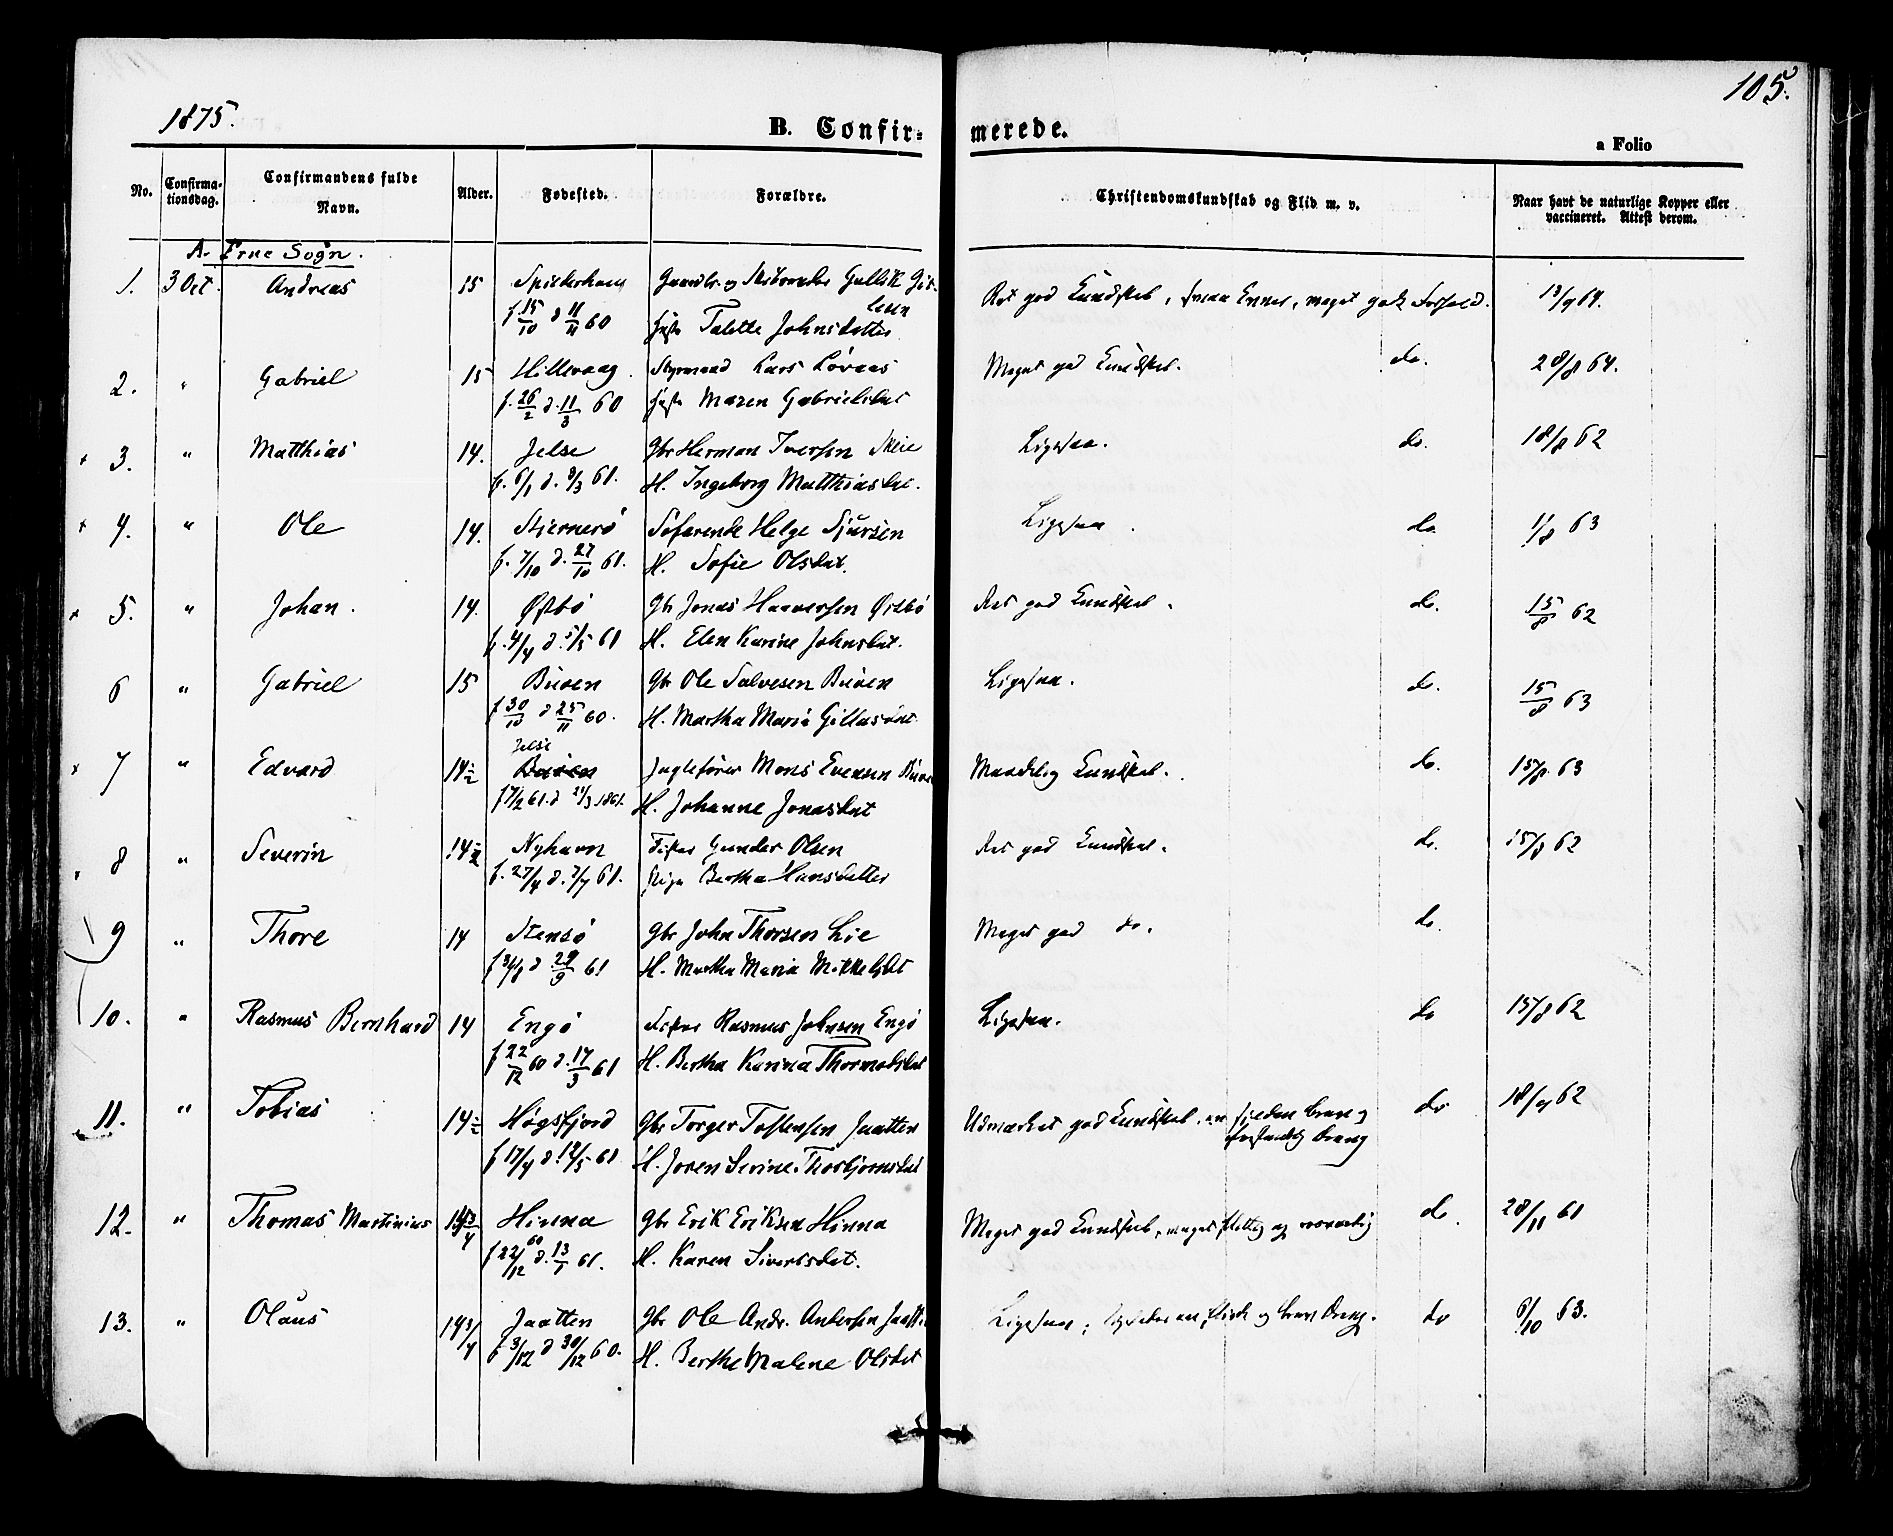 105.
1875.
B. Confir- merede.
a Folio
No. Confirmationsdag. Confirmandens fulde Navn. Alder. Fødested. Forældre. Christendomskundskab og Flid m. v. Naar havt de naturlige Kopper eller vaccineret. Attest derom.
A. Frue Sogn.
1. 3 Oct. Andreas 15 Gullik Ret god Kundskab, meget godt Forhold. 13/9 64.
f 15/10 d 11/11 60 Talette Johnsdatter
2. " Gabriel 15 Hillevaag. Styrmand Lars Løvaas Meget god Kundskab. do. 28/8 64.
f. 26/2 d. 11/3 60 Maren Gabrielsdat
3. " Matthias 14. Jelse Gbr Herman Iversen Meie Ligesaa. do. 18/8 62
f. 6/1 d. 8/3 61. H. Ingeborg Matthiasdat.
4. " Ole 14. Stjernerö Söfarende Helge Sjursen Ligesaa. do. 1/8 63
f. 7/10 d. 27/10 61. H. Sofie Olsdat.
5. " Johan. 14. Østbö Gbr Jonas Haaversen Østbö Ret god Kundskab. do. 15/8 62
f. 4/4 d. 5/5 61 H. Elen Karine Johnsdat.
6 " Gabriel 15 Buøen Gbr Ole Salvesen Buøen Ligesaa. do. 15/8 63
f 30/10 d 25/11 60. H. Martha Maria Gillasdat
Jelse
7 " Edvard 14½ Buøen Jagtefører Mons Evensen Maadelig Kundskab. do. 15/8 63
f 7/2 61. d 24/3 1861. H. Johanne Jonasdat
8 " Severin 14½ Nyhavn Fisker Gunder Olsen Ret god Kundskab. do. 15/8 62
f. 27/4 d. 7/7 61. Pige Bertha Hansdatter
9 " Thore 14 Stensö Gbr John Thorsen Lie Meget god do. do.
f 31/8 d 29/9 61 H. Martha Maria Mikkelsdt
10. " Rasmus Bernhard 14 Engö Fisker Rasmus Johnsen Engö Ligesaa. do 15/8 62
f 22/12 60 d. 17/3 61 H. Bertha Karina Thormodsdat
11. " Tobias 14½ Høgsfjord Gbr Torger Tostensen Jaatten Udmærket god Kundskab. en sjelden brav og do 18/9 62
forstandig Dreng
f 17/4 d. 12/5 61 H. Joren Serine Thorbjørnsdat
12. " Thomas Martinius 14 3/4 Hinna Gbr Erik Eriksen Hinna Meget god Kundskab, meget flittig og alvorlig do. 28/11 61
f 22/12 60 d. 13/1 61. H. Karen Sivertsdat.
13. " Olaus 14 3/4 Jaatten Gbr Ole Andr. Andersen Ligesaa; og brav Dreng. do 6/10 63.
f 3/12 d 30/12 60. H. Berthe Malene Olsdat